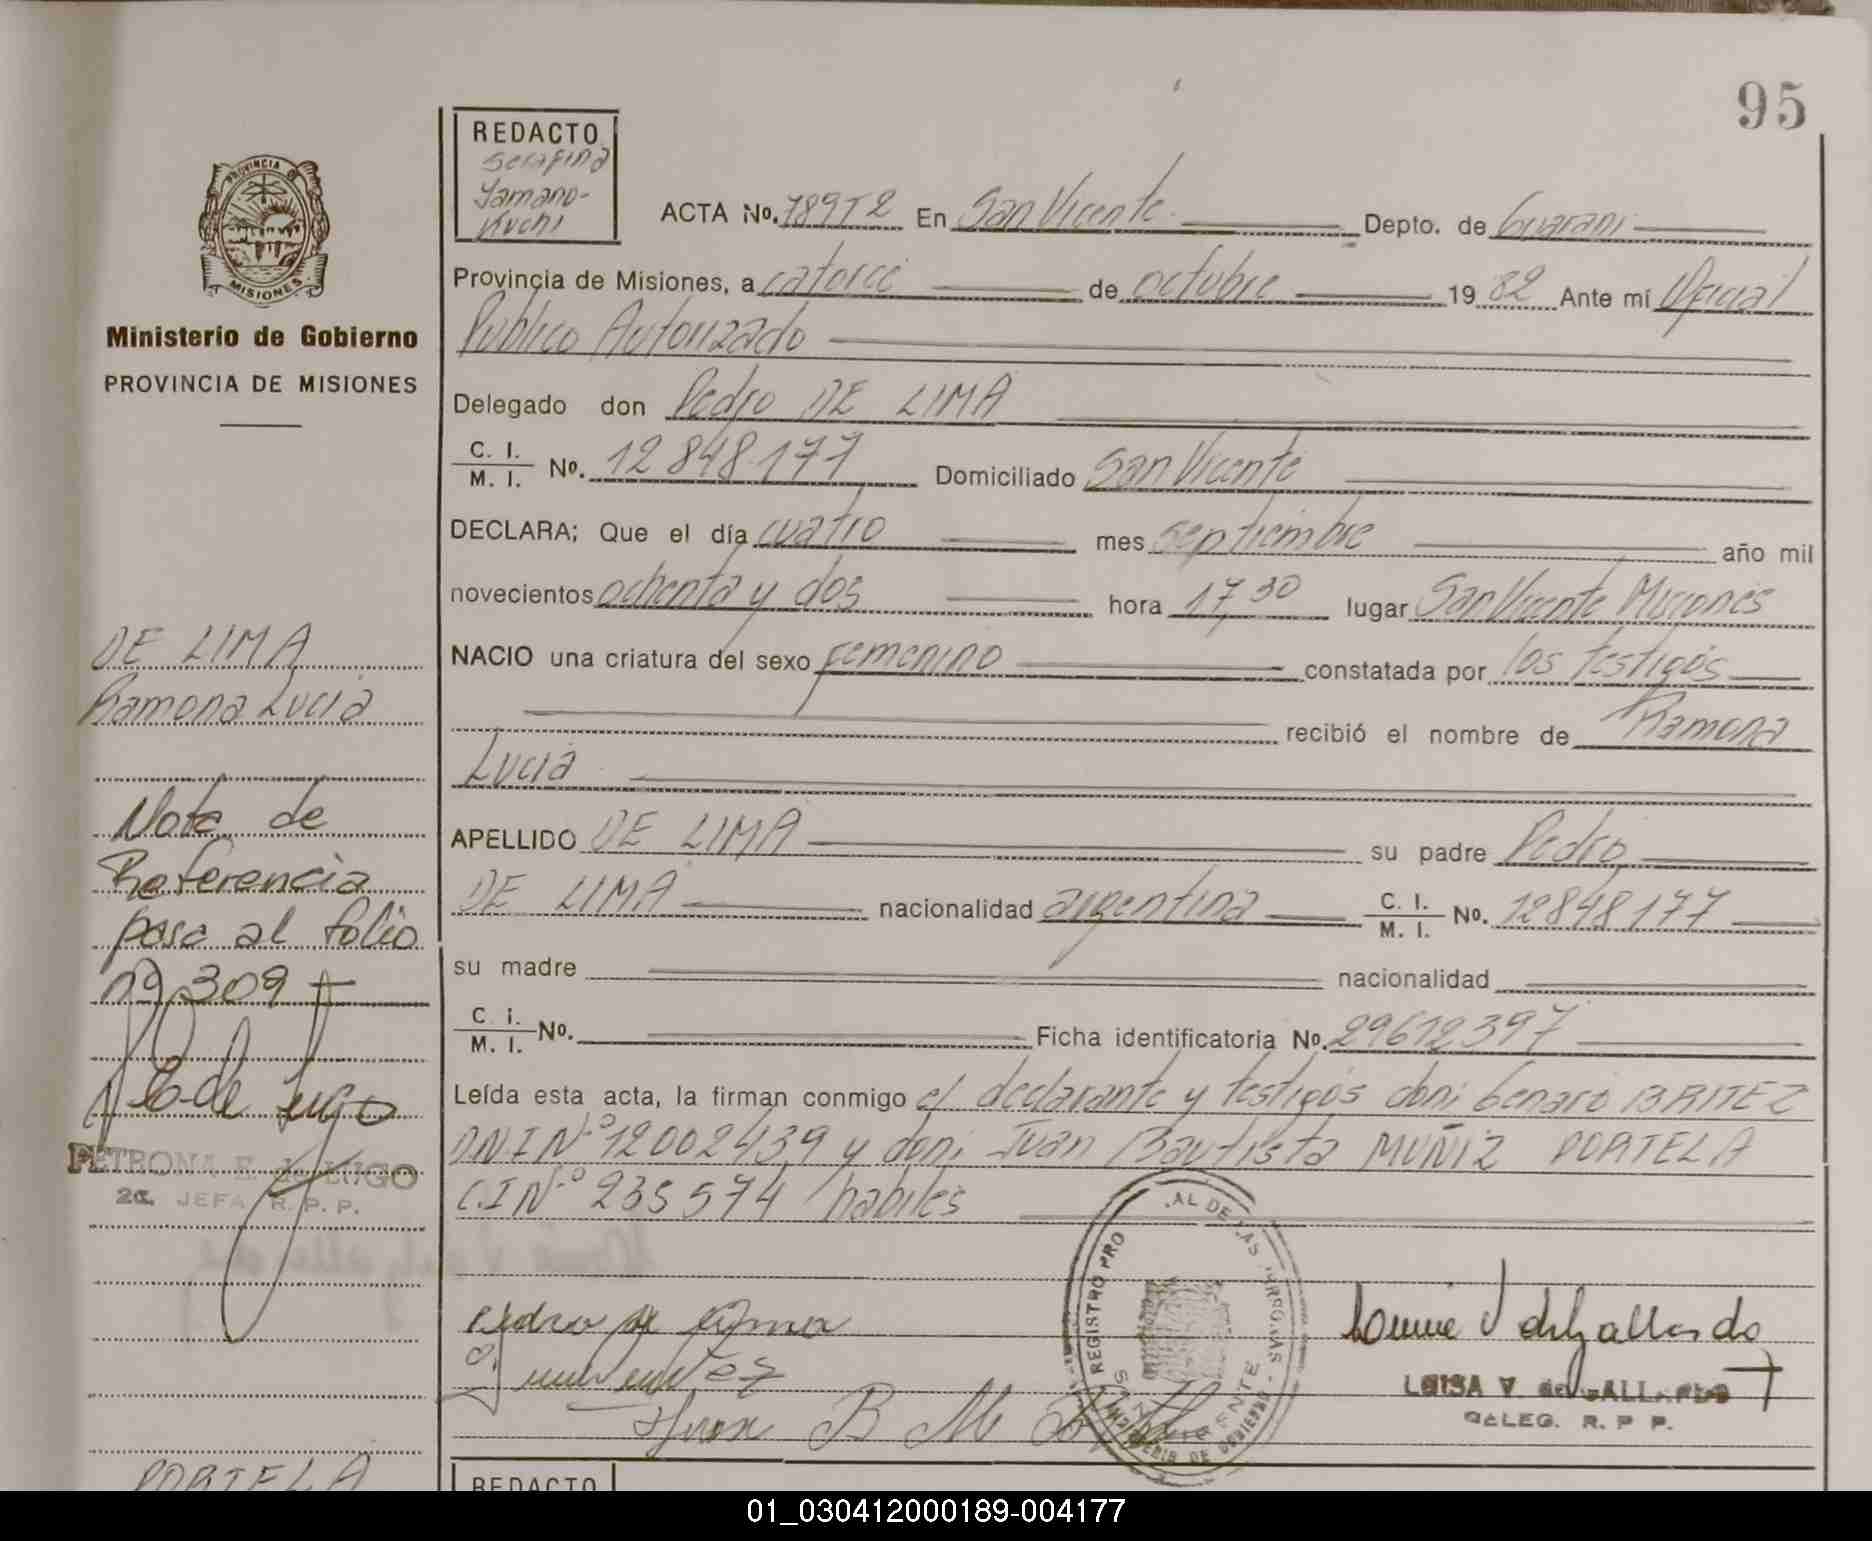 95
REDACTO
Serafina
Yamano-
Kuchi
PROVINCIA DE MISIONES
Ministerio de Gobierno
PROVINCIA DE MISIONES
ACTA No. 789T2 En San Vicente Depto. de Guarani
Provincia de Misiones, a catorce de octubre 19 82 Ante mí Oficial
Publico Autorizado
Delegado don Pedro DE LIMA
C. I. / M. I. No. 12 848.177 Domiciliado San Vicente
DECLARA; Que el día cuatro mes septiembre año mil
novecientos ochenta y dos hora 17,30 lugar San Vicente Misiones
NACIO una criatura del sexo femenino constatada por los testigos
recibió el nombre de Ramona
Lucia
APELLIDO DE LIMA su padre Pedro
DE LIMA nacionalidad argentina C. I. / M. I. No. 12848177
su madre nacionalidad
C. i. / M. I. No. Ficha identificatoria No. 29612397
Leída esta acta, la firman conmigo el declarante y testigos don: Genaro BRITEZ
D.N.I Nº 12002439 y don: Juan Bautista MUÑIZ PORTELA
C.I Nº 235574 habiles
DE LIMA
Ramona Lucia
Nota de
Referencia
pasa al folio
nº 309
E. de Lugo
PETRONA E. de LUGO
2a. JEFA R. P. P.
Pedro de Lima
Juan B M
REGISTRO PRO AL DE LAS PERSONAS
SAN VICENTE
MINISTERIO DE GOBIERNO
Luisa V de Gallardo
LUISA V de GALLARDO
DELEG. R. P P.
PORTELA
REDACTO
01_030412000189-004177